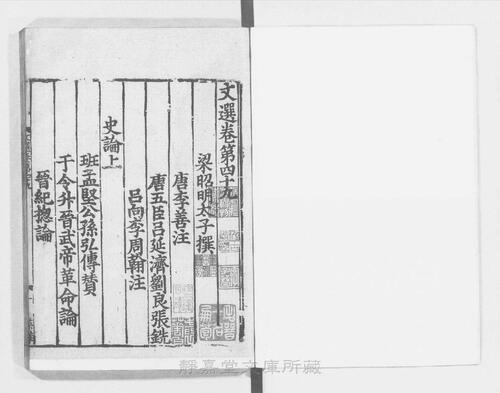 文選卷第四十九
梁昭明太子撰
唐李善注
唐五臣呂延濟劉良張銑
呂向李周翰注
史論上
班孟堅公孫弘傳贊
于令升晉武帝革命論
晉紀揔論
靜嘉堂文庫所藏